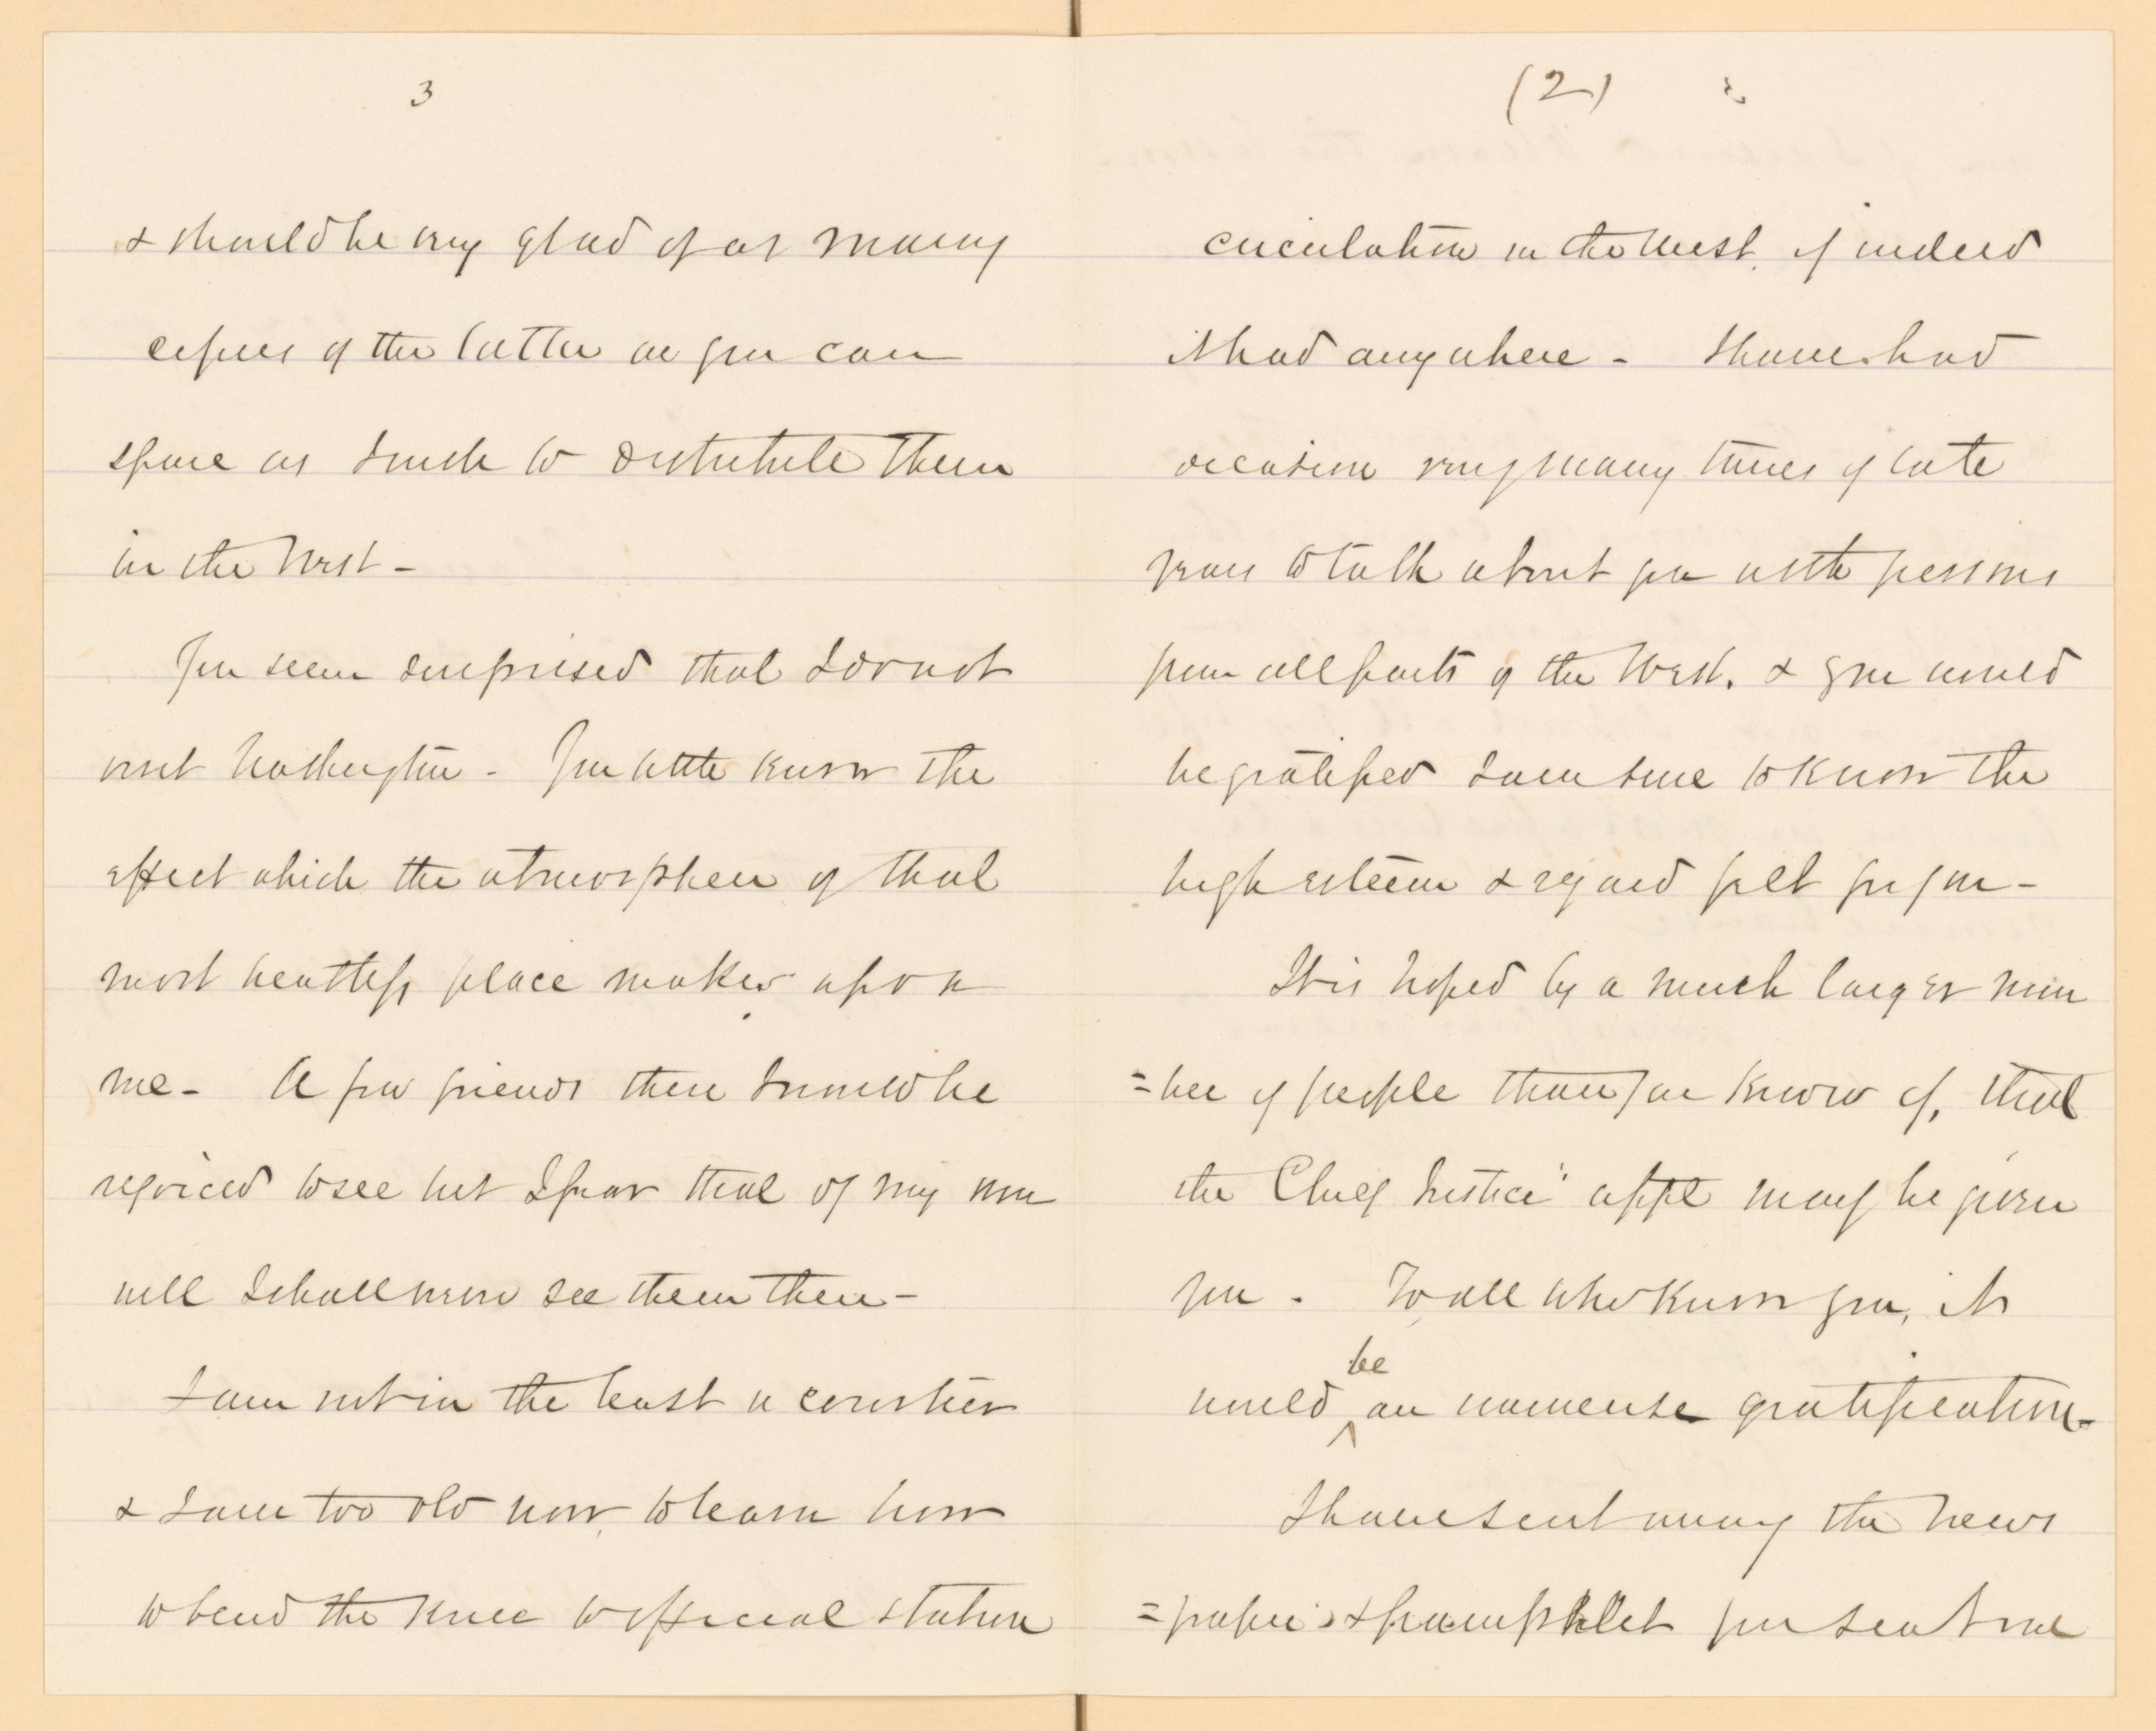 3
& should be very glad of as many
copies of the latter as you can
spare as I wish to distribute them
in the West -
You seem surprised that I do not
visit Washington - You little know the
effect which the atmosphere of that
most heartless place makes upon
me - A few friends there I would be
rejoiced to see but I fear that of my own
will I shall never see them there -
I am not in the least a courtier
& I am too old now, to learn how
to bend the knee to official station
(2) 2
circulation in the West, if indeed
it had anywhere - I have had
occasion very many times of late
years to talk about you with persons
from all parts of the West. & you would
be gratified I am sure to know the
high esteem & regard felt for you -
It is hoped by a much larger num
=ber of people than you know of, that
the Chief Justice' appt may be given
you. To all who know you, it
would be an immense gratification -
I have sent away the news
=papers & pamphlet you sent me